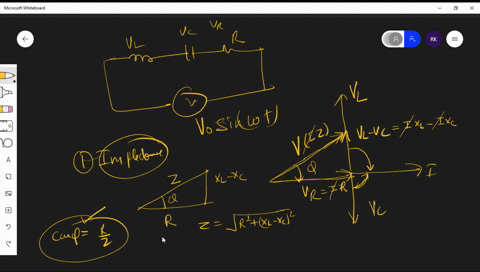 Microsoft Whiteboard
RK
VL
VC
VR
R
V
V0 Sin(ωt)
① Impedance
Z
XL-XC
φ
R
Z = √R²+(XL-XC)²
cosφ = R/Z
VL
V(IZ)
VL-VC = IXL-IXC
φ
I
VR = IR
VC